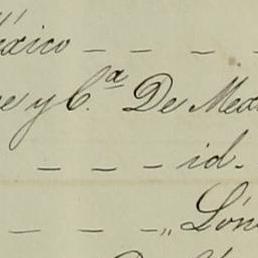 éxico — — — —
e y C.ª De Mex
— — — — id.
— — — — „ Lón